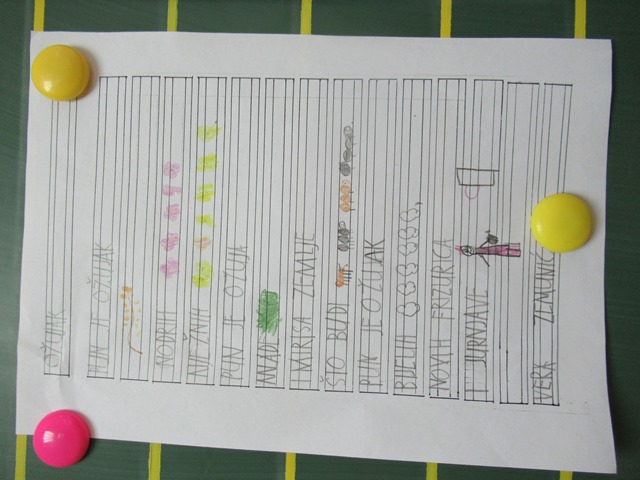 OŽUJAK
PUN JE OŽUJAK
MODRIH
NJEŽNIH
PUN JE OŽUJA
I MIRISA ZEMLJE
ŠTO BUDI
PUN JE OŽUJAK
BIJELIH ,
NOVIH FRIZURICA
I JURNJAVE
ZEMUNIĆ